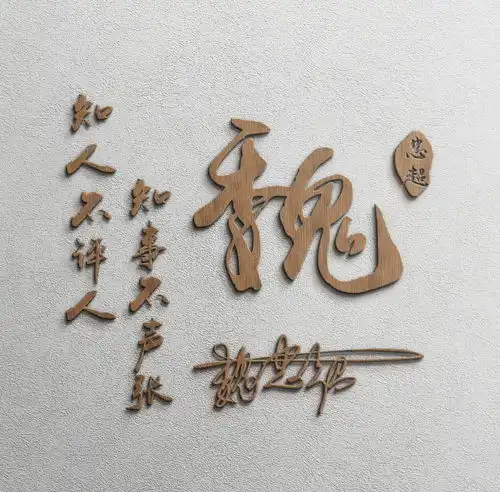 魏
忠超
知人不评人
知事不声张
魏忠超